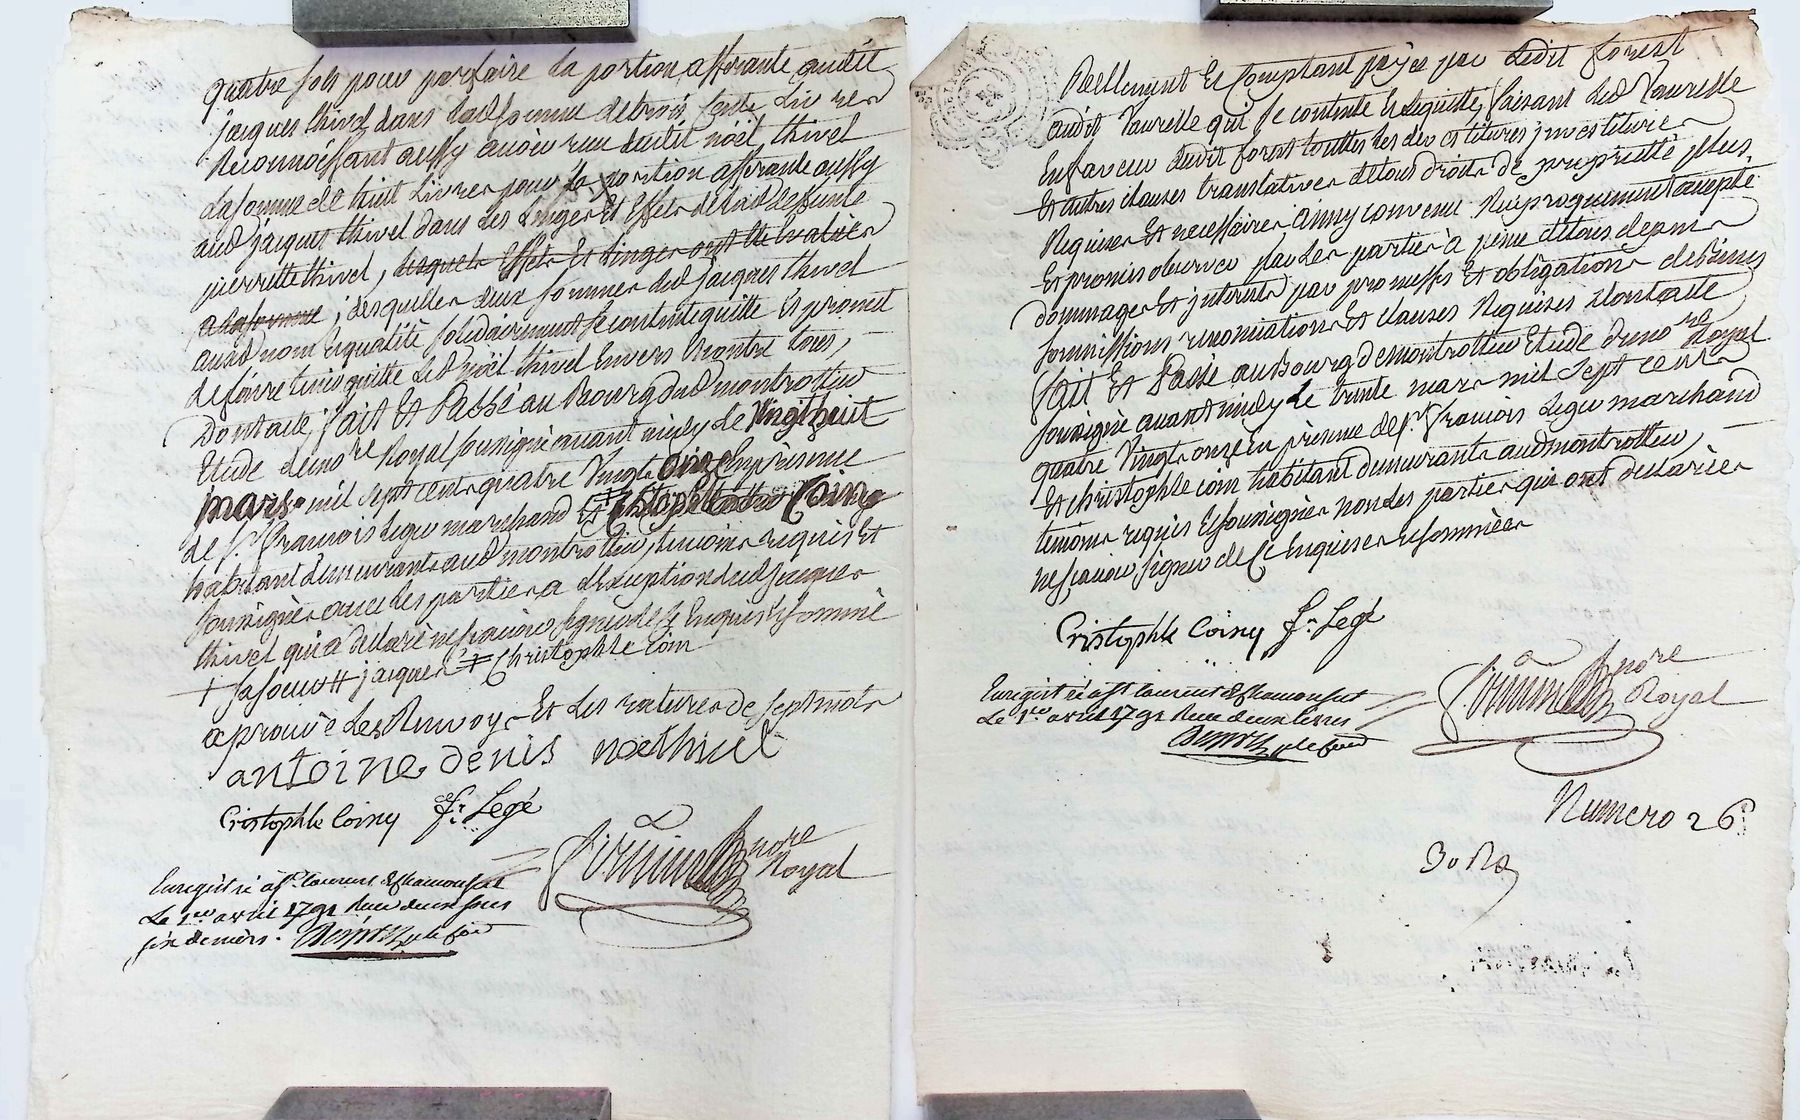 quatre sols pour parfaire la portion afferante audit
jacques thivel dans lad somme de trois cents Livres
Reconnoissant aussy avoir reçu dudit noël thivel
la somme de huit Livres pour sa portion afferante aussy
aud jacques thivel dans les Linges Et Effets de lad deffunte
pierrette thivel, desquels Effets Et Linges ont été Evalués
a la somme ; desquelles deux sommes led jacques thivel
aud nom Et qualité solidairement se contente quitte Et promet
de faire tenir quitte Led noël thivel Envers Et contre tous,
Dont acte, fait Et Passé au Bourg dud montrottier
Etude de no.re Royal soussigné avant midy le vingt huit
mars mil sept cent quatre vingt onze En présence
de s.r françois Leger marchand Et Christophle Coing
habitant demeurants aud montrottier, temoins requis Et
soussignés avec les parties a l'Exception dud jacques
thivel qui a déclaré ne savoir signer de ce Enquis Et sommé
+ sa soeur # jacques ‡ Christophle Coin
aprouvé Les Renvoys Et Les ratures de sept mots
antoine denis noel thivel
Cristophle Coiny f.r Legé
no.re
Royal
Enregistré a s.t Laurent de Chamousset
Le 1.er avril 1791 Reçu deux sous
six deniers.
Réellement Et Comptant payée par Ledit forest
audit Laurelle qui se contente Et Le quitte, faisant Led Laurelle
En faveur dudit forest touttes les devestitures, investitures
Et autres clauses translatives de tous droits de proprietté plus
Requises Et necessaires ainsy convenu Reciproquement accepté
Et promis observer par les parties à peine de tous depens
dommages Et interets par promesses Et obligations de Biens
soumissions renonciations Et clauses Requises Dont acte
fait Et Passé au Bourg de montrottier Etude de no.re Royal
soussigné avant midy le trente mars mil sept cent
quatre vingt onze En présence de s.r françois Leger marchand
Et Christophle Coin habitant demeurants aud montrottier,
temoins requis Et soussignés non les parties qui ont déclarées
ne savoir signer de Ce Enquises Et sommées
Cristophle Coiny f.r Legé
no.re
Royal
Enregistré a s.t Laurent de Chamousset
Le 1.er avril 1791 Reçu deux livres
Numero 26